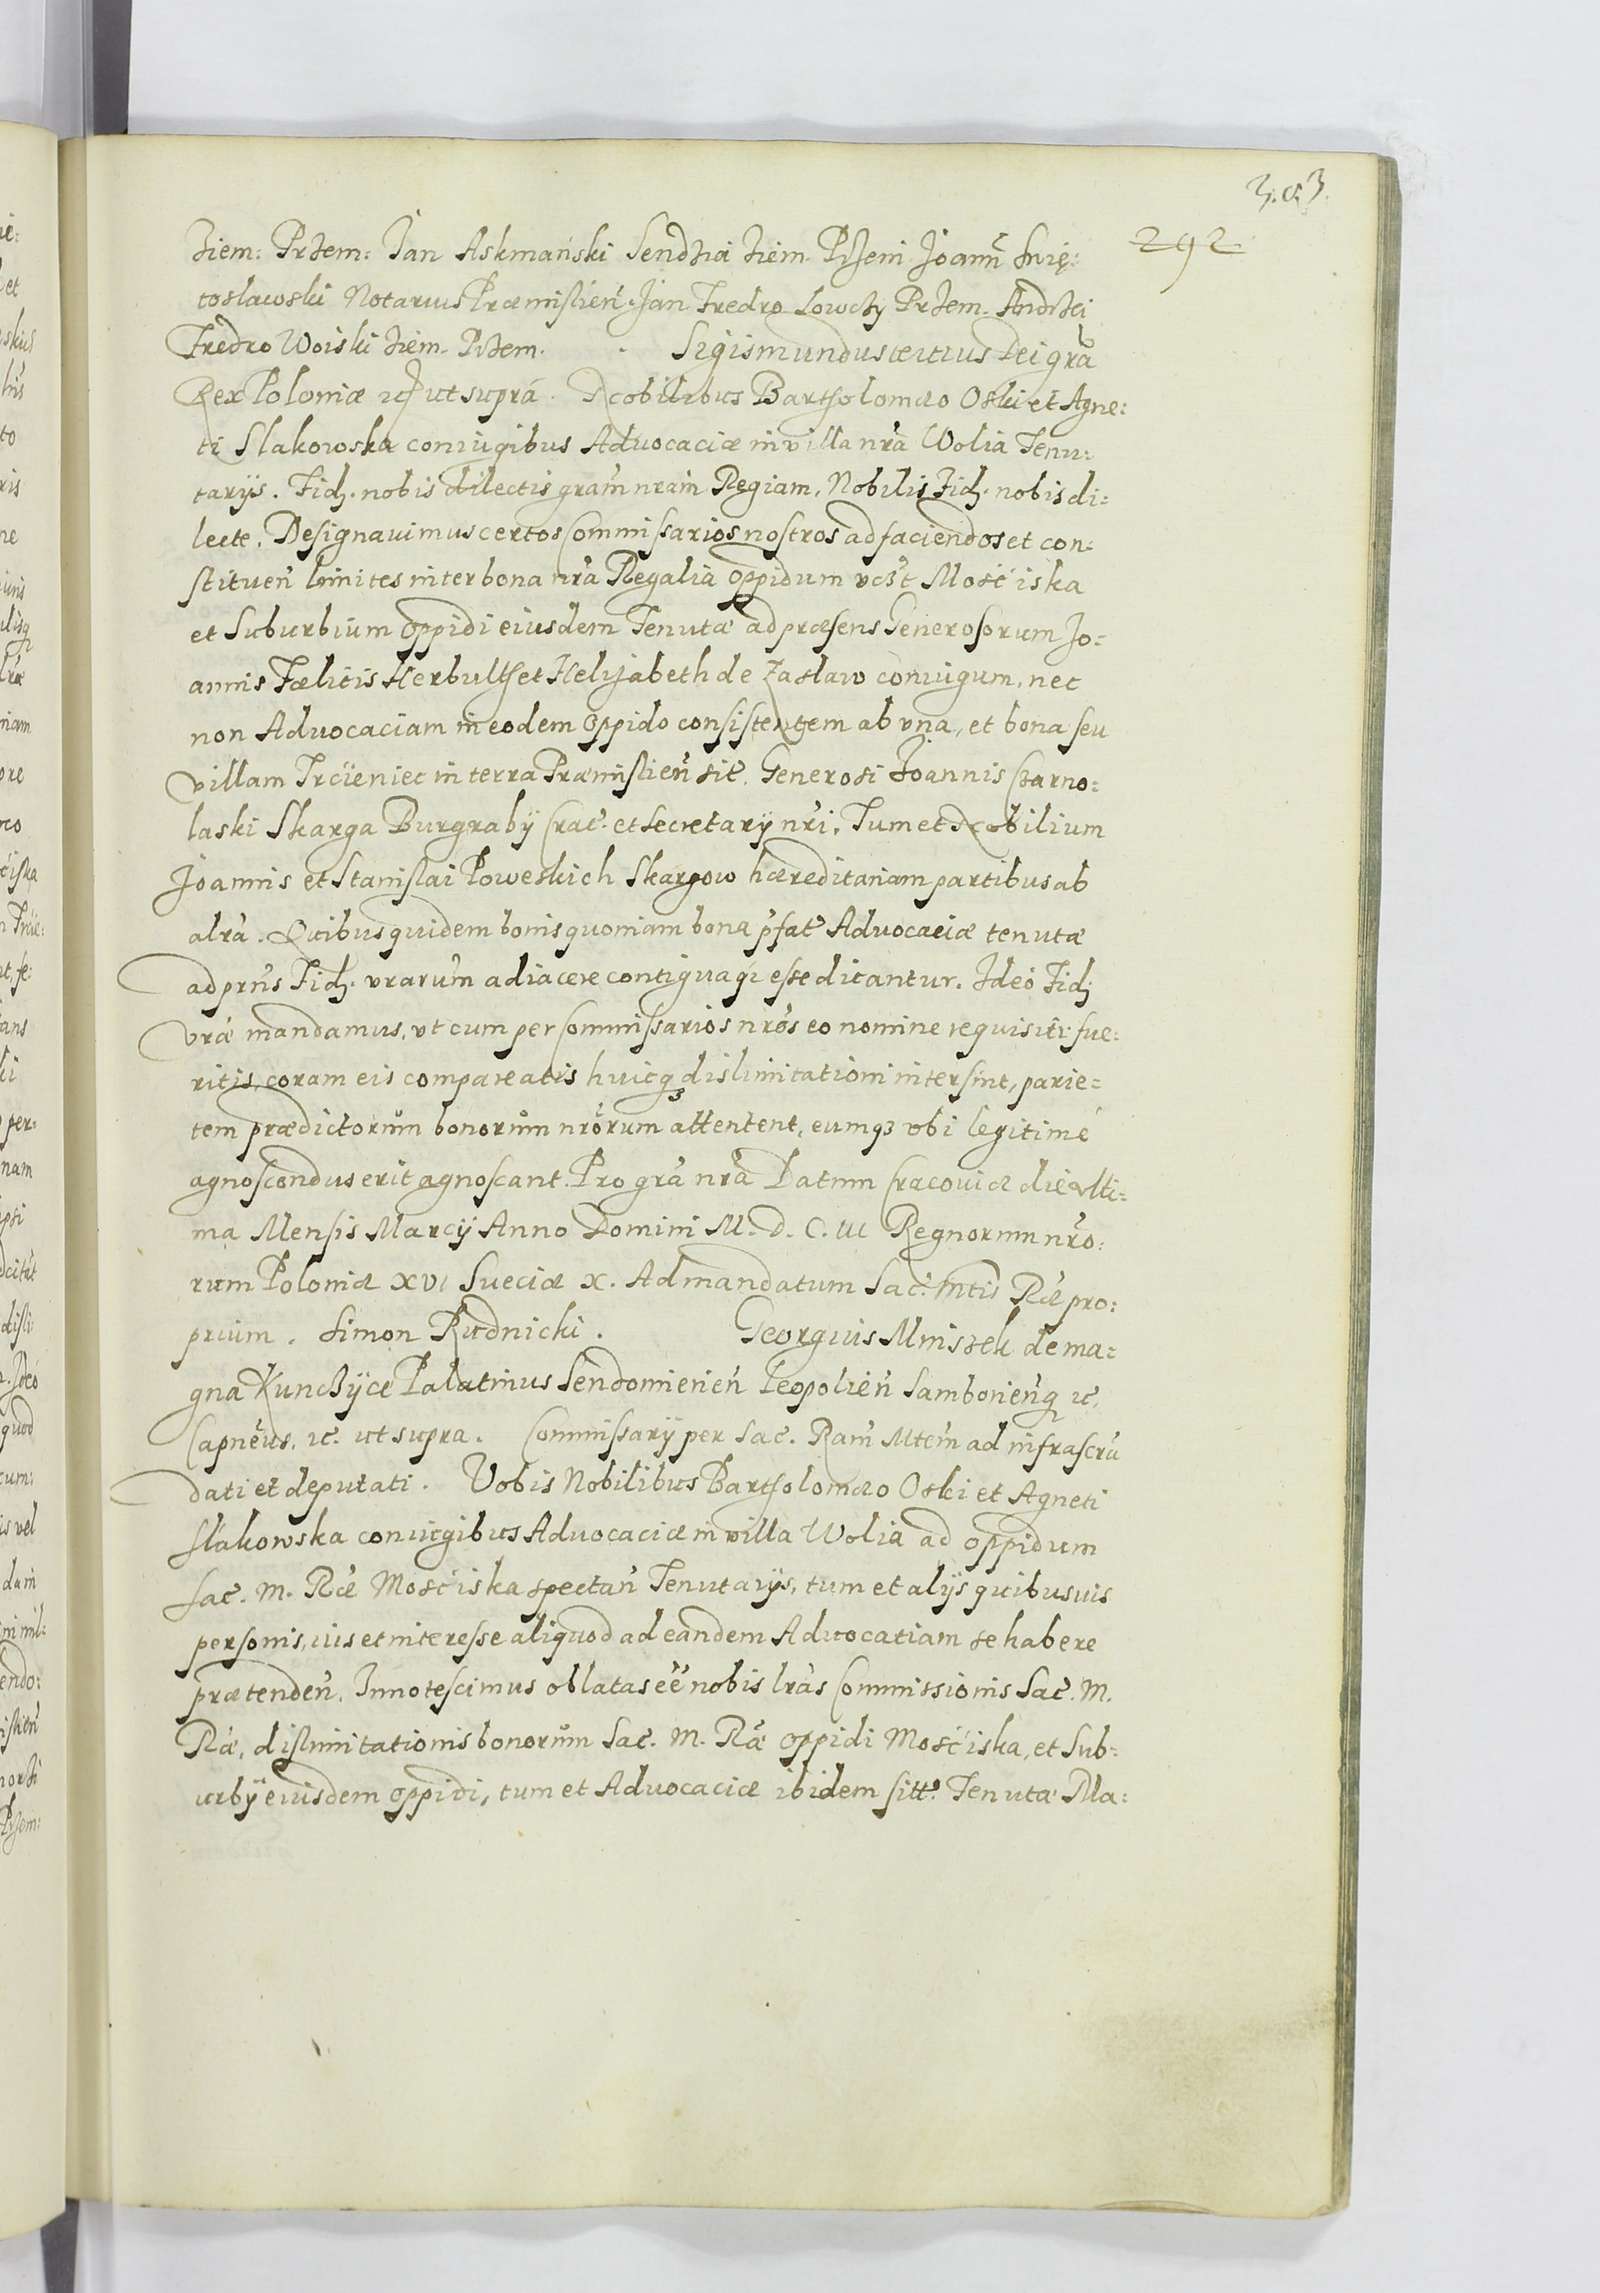 303.
292
Ziem: Przem: Jan Askmański Sendzia Ziem. Przeni Joann̄ Swię:
tosławski Notarius Præmislien̄. Jan Fredro Łowczy Przem. Andrzei
Fredro Woiski Ziem. Przem. Sigismundus tertius Dei grã
Rex Poloniæ ic̃ ut suprá. Nobilibus Bartholomæo Oski et Agne:
ti Slakowska coniugibus Advocaciæ in villa nr̃a Wolia Tenu:
tarijs. Fid. nobis dilectis gram̃ nram̃ Regiam. Nobilis Fid. nobis di:
lecte. Designavimus certos Commissarios nostros ad faciendos et con:
stituen̄ limites inter bona nr̃a Regalia Oppidum vcs̃t Mosćiska
et Suburbium Oppidi eiusdem Tenutæ ad præsens Generosorum Jo:
annis Fælicis Herbulth et Helizabeth de Zaslaw coniugum, nec
non Advocaciam in eodem Oppido consistentem ab vna, et bona seu
villam Trcieniec in terra Præmislien̄ sit̃. Generosi Joannis Czarno:
laski Skarga Burgrabij Crac̃. et Secretarij nr̃i, Tum et Nobilium
Joannis et Stanislai Poweskich Skargow hæreditariam partibus ab
alr̃a. Quibus quidem bonis quoniam bona p̃fat̃ Advocaciæ tenutæ
ad prñs Fid. vrarum̃ adiacere contiguaq; esse dicantur. Ideó Fid
vr̃æ mandamus, vt cum per Commissarios nrõs eo nomine requisiti fue:
ritis, coram eis compareatis huicq; dislimitationi intersint, parie:
tem prædictorum̃ bonorum̃ nrõrum attentent, eumq; vbi legitimé
agnoscendus erit agnoscant. Pro grã nrã Datum Cracoviæ die vlti:
ma Mensis Marcij Anno Domini M. D. C. III Regnorum nrõ:
rum Poloniæ XVI Sueciæ X. Ad mandatum Sac̃. Mtis Rẽ pro:
prium. Simon Rudnicki. Georgius Mniszek de ma:
gna Kunczijce Palatinus Sendomirien̄ Leopolien̄ Samborien̄q; ic̃.
Capnẽus. ic̃. ut supra. Commissarij per Sac̃. Ram̃ Mtem̃ ad infrascr̃a
dati et deputati. Vobis Nobilibus Bartholomæo Oski et Agneti
Slakowska coniugibus Advocaciæ in villa Wolia ad oppidum
Sac̃. M. Rẽ Mosćiska spectan̄ Tenutarijs, tum et alijs quibusuis
personis, ius et interesse aliquod ad eandem Advocatiam se habere
prætenden̄. Innotescimus oblatas eẽ nobis lrãs Commissionis Sac̃. M.
Rẽ, dislimitationis bonorum̃ Sac̃. M. Rẽ oppidi Mosćiska, et Sub:
urbij eiusdem oppidi, tum et Advocaciæ ibidem sitt̃. Tenutæ Ma: